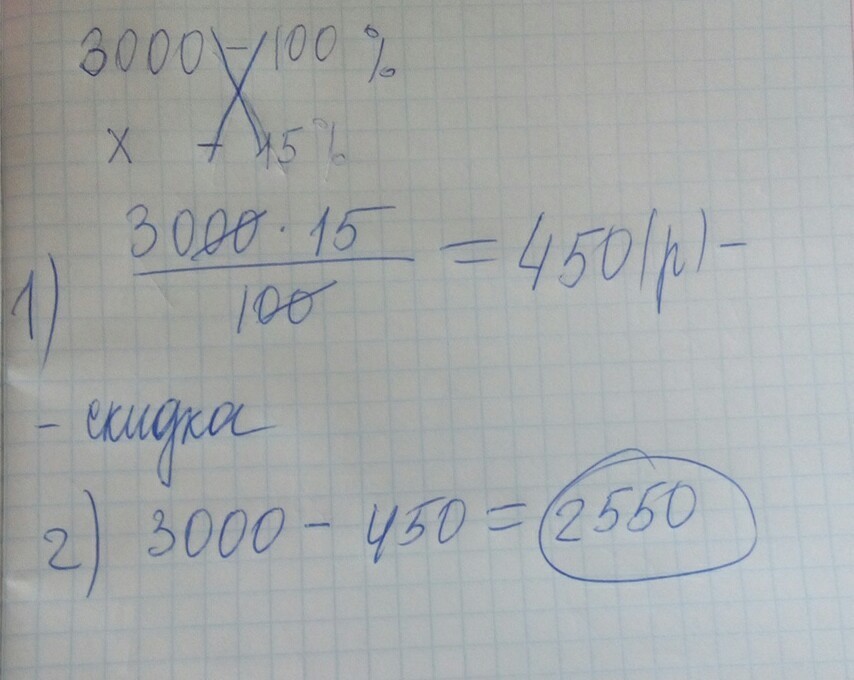 3000 - 100 %
x - 15%
1) 3000 · 15 / 100 = 450 (р) -
- скидка
2) 3000 - 450 = 2550